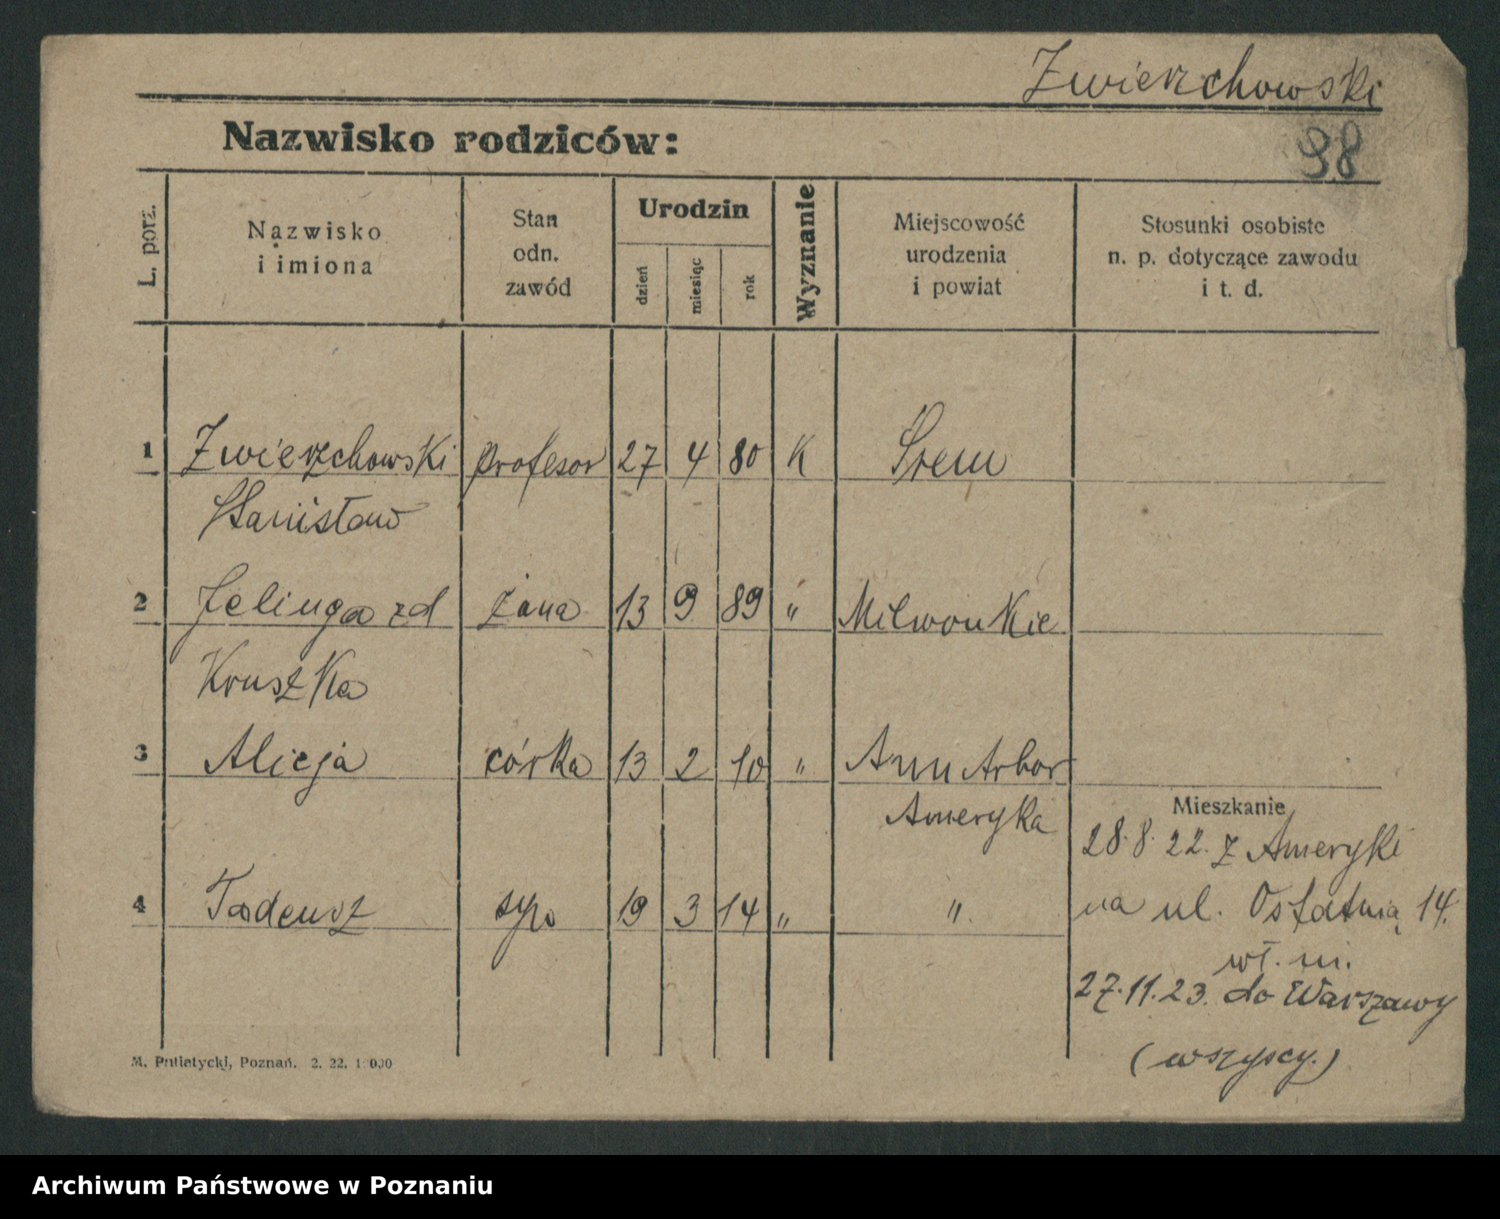 Zwierzchowski
98
Nazwisko rodziców:
L. porz.
Nazwisko
i imiona
Stan
odn.
zawód
Urodzin
dzień
miesiąc
rok
Wyznanie
Miejscowość
urodzenia
i powiat
Stosunki osobiste
n. p. dotyczące zawodu
i t. d.
1 Zwierzchowski profesor 27 4 80 K Śrem
Stanisław
2 Felinga zd żona 13 9 89 " Milwoukie
Kruszka
3 Alicja córka 13 2 10 " Ann Arbor
Ameryka
Mieszkanie
28.8.22. z Ameryki
4 Tadeusz syn 19 3 14 " "
na ul. Ostatnią 14.
wł. m.
27.11.23. do Warszawy
(wszyscy.)
M. Putiatycki, Poznań. 2. 22. 1000
Archiwum Państwowe w Poznaniu